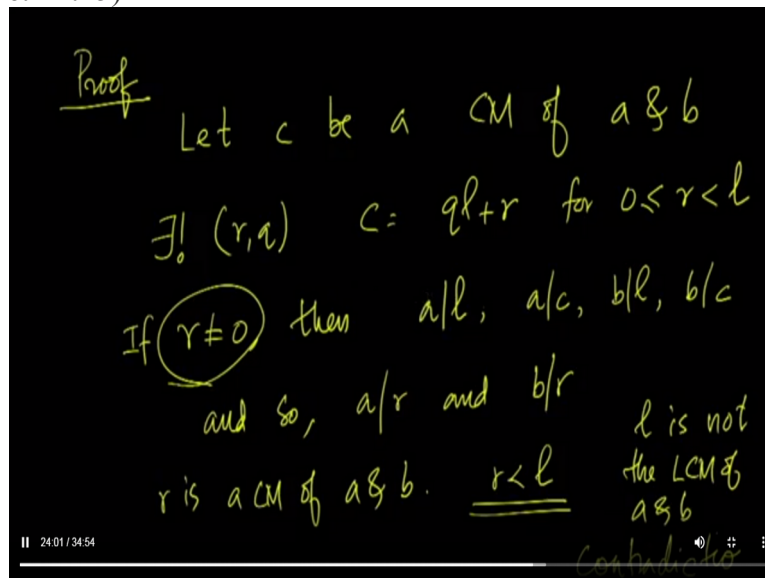 Proof
Let c be a CM of a & b
∃! (r,q) c = ql+r for 0≤r<l
If r≠0 then a/l, a/c, b/l, b/c
and so, a/r and b/r
r is a CM of a & b. r<l
l is not
the LCM of
a & b
Contradictio
24:01 / 34:54